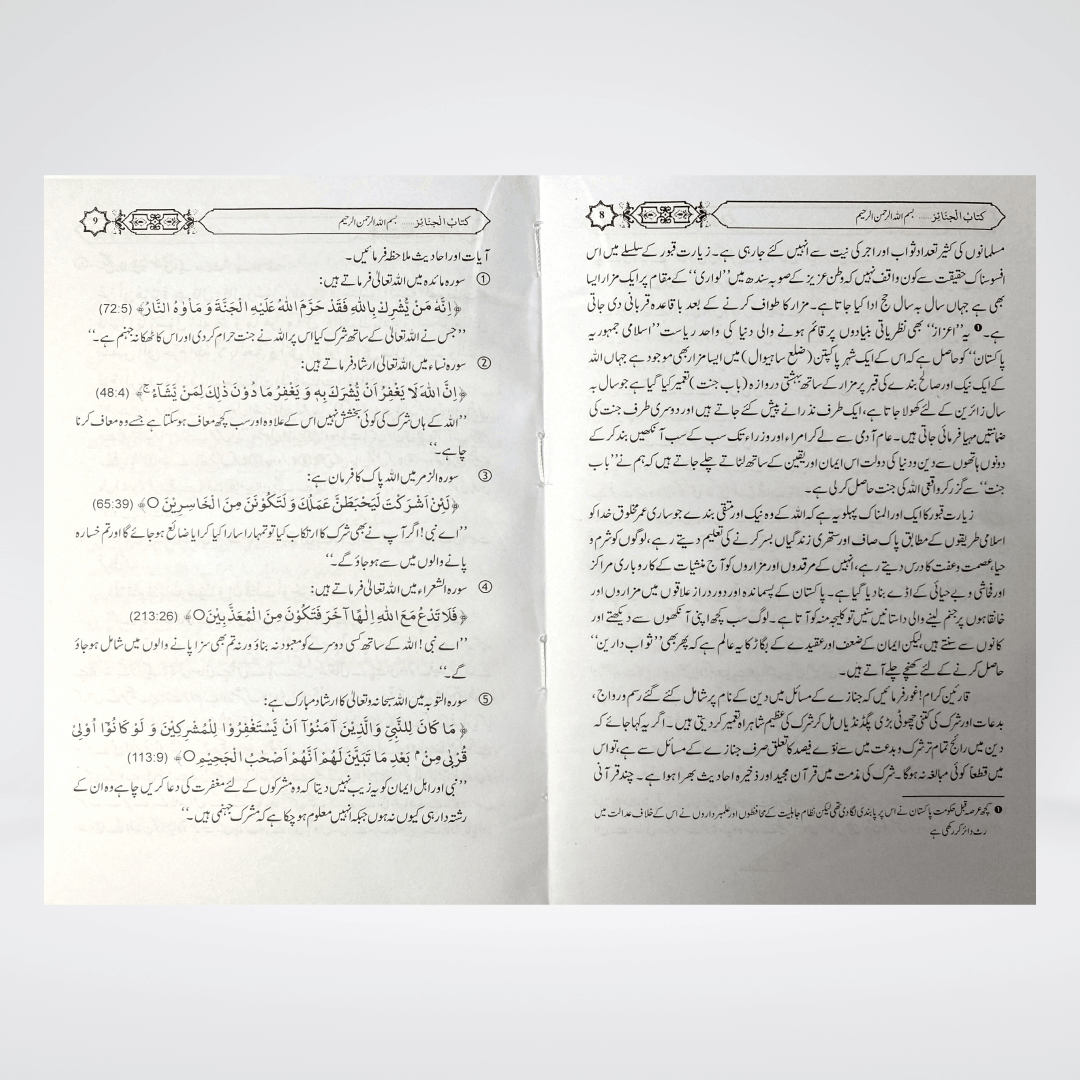 کتابُ الْجَنَائِز ...... بسم اللہ الرحمن الرحیم 8
مسلمانوں کی کثیر تعداد ثواب اور اجر کی نیت سے انہیں کئے جا رہی ہے۔ زیارت قبور کے سلسلے میں اس
افسوسناک حقیقت سے کون واقف نہیں کہ وطن عزیز کے صوبہ سندھ میں ’’لواری‘‘ کے مقام پر ایک مزار ایسا
بھی ہے جہاں سال بہ سال حج ادا کیا جاتا ہے۔ مزار کا طواف کرنے کے بعد باقاعدہ قربانی دی جاتی
ہے۔❶ یہ ’’اعزاز‘‘ بھی نظریاتی بنیادوں پر قائم ہونے والی دنیا کی واحد ریاست ’’اسلامی جمہوریہ
پاکستان‘‘ کو حاصل ہے کہ اس کے ایک شہر پاکپتن (ضلع ساہیوال) میں ایسا مزار بھی موجود ہے جہاں اللہ
کے ایک نیک اور صالح بندے کی قبر پر مزار کے ساتھ بہشتی دروازہ (باب جنت) تعمیر کیا گیا ہے جو سال بہ
سال زائرین کے لئے کھولا جاتا ہے، ایک طرف نذرانے پیش کئے جاتے ہیں اور دوسری طرف جنت کی
ضمانتیں مہیا فرمائی جاتی ہیں۔ عام آدمی سے لے کر امراء اور وزراء تک سب کے سب آنکھیں بند کر کے
دونوں ہاتھوں سے دین و دنیا کی دولت اس ایمان اور یقین کے ساتھ لٹاتے چلے جاتے ہیں کہ ہم نے ’’باب
جنت‘‘ سے گزر کر واقعی اللہ کی جنت حاصل کر لی ہے۔
زیارت قبور کا ایک اور المناک پہلو یہ ہے کہ اللہ کے وہ نیک اور متقی بندے جو ساری عمر مخلوق خدا کو
اسلامی طریقوں کے مطابق پاک صاف اور ستھری زندگیاں بسر کرنے کی تعلیم دیتے رہے، لوگوں کو شرم و
حیا، عصمت و عفت کا درس دیتے رہے، انہیں کے مرقدوں اور مزاروں کو آج منشیات کے کاروباری مراکز
اور فحاشی و بے حیائی کے اڈے بنا دیا گیا ہے۔ پاکستان کے پسماندہ اور دور دراز علاقوں میں مزاروں اور
خانقاہوں پر جنم لینے والی داستانیں سنیں تو کلیجہ منہ کو آتا ہے۔ لوگ سب کچھ اپنی آنکھوں سے دیکھتے اور
کانوں سے سنتے ہیں، لیکن ایمان کے ضعف اور عقیدے کے بگاڑ کا یہ عالم ہے کہ پھر بھی ’’ثواب دارین‘‘
حاصل کرنے کے لئے کھنچے چلے آتے ہیں۔
قارئین کرام! غور فرمائیں کہ جنازے کے مسائل میں دین کے نام پر شامل کئے گئے رسم و رواج،
بدعات اور شرک کی کتنی چھوٹی بڑی پگڈنڈیاں مل کر شرک کی عظیم شاہراہ تعمیر کر دیتی ہیں۔ اگر یہ کہا جائے کہ
دین میں رائج تمام تر شرک و بدعت میں سے نوّے فیصد کا تعلق صرف جنازے کے مسائل سے ہے، تو اس
میں قطعاً کوئی مبالغہ نہ ہوگا۔ شرک کی مذمت میں قرآن مجید اور ذخیرہ احادیث بھرا ہوا ہے۔ چند قرآنی
❶ کچھ عرصہ قبل حکومت پاکستان نے اس پر پابندی لگا دی تھی لیکن نظام جاہلیت کے محافظوں اور علمبرداروں نے اس کے خلاف عدالت میں
رٹ دائر کر رکھی ہے
کتابُ الْجَنَائِز ...... بسم اللہ الرحمن الرحیم 9
آیات اور احادیث ملاحظہ فرمائیں۔
① سورہ مائدہ میں اللہ تعالیٰ فرماتے ہیں:
﴿اِنَّهٗ مَنْ يُّشْرِكْ بِاللهِ فَقَدْ حَرَّمَ اللهُ عَلَيْهِ الْجَنَّةَ وَ مَاْوٰهُ النَّارُ﴾ (72:5)
’’جس نے اللہ تعالیٰ کے ساتھ شرک کیا اس پر اللہ نے جنت حرام کر دی اور اس کا ٹھکانہ جہنم ہے۔‘‘
② سورہ نساء میں اللہ تعالیٰ ارشاد فرماتے ہیں:
﴿اِنَّ اللهَ لَا يَغْفِرُ اَنْ يُّشْرَكَ بِهٖ وَ يَغْفِرُ مَا دُوْنَ ذٰلِكَ لِمَنْ يَّشَآءُ ج﴾ (48:4)
’’اللہ کے ہاں شرک کی کوئی بخشش نہیں اس کے علاوہ اور سب کچھ معاف ہو سکتا ہے جسے وہ معاف کرنا
چاہے۔‘‘
③ سورہ الزمر میں اللہ پاک کا فرمان ہے:
﴿لَئِنْ اَشْرَكْتَ لَيَحْبَطَنَّ عَمَلُكَ وَ لَتَكُوْنَنَّ مِنَ الْخَاسِرِيْنَ ○﴾ (65:39)
’’اے نبی! اگر آپ نے بھی شرک کا ارتکاب کیا تو تمہارا سارا کیا کرایا ضائع ہو جائے گا اور تم خسارہ
پانے والوں میں سے ہو جاؤ گے۔‘‘
④ سورہ الشعراء میں اللہ تعالیٰ فرماتے ہیں:
﴿فَلَا تَدْعُ مَعَ اللهِ اِلٰهًا آخَرَ فَتَكُوْنَ مِنَ الْمُعَذَّبِيْنَ○﴾ (213:26)
’’اے نبی! اللہ کے ساتھ کسی دوسرے کو معبود نہ بناؤ ورنہ تم بھی سزا پانے والوں میں شامل ہو جاؤ
گے۔‘‘
⑤ سورہ التوبہ میں اللہ سبحانہ و تعالیٰ کا ارشاد مبارک ہے:
﴿ مَا كَانَ لِلنَّبِيِّ وَالَّذِيْنَ آمَنُوْآ اَنْ يَّسْتَغْفِرُوْا لِلْمُشْرِكِيْنَ وَ لَوْ كَانُوْٓا اُوْلِىْ
قُرْبٰى مِنْ ۢ بَعْدِ مَا تَبَيَّنَ لَهُمْ اَنَّهُمْ اَصْحٰبُ الْجَحِيْمِ○﴾ (113:9)
’’نبی اور اہل ایمان کو یہ زیب نہیں دیتا کہ وہ مشرکوں کے لئے مغفرت کی دعا کریں چاہے وہ ان کے
رشتہ دار ہی کیوں نہ ہوں جبکہ انہیں معلوم ہو چکا ہے کہ مشرک جہنمی ہیں۔‘‘